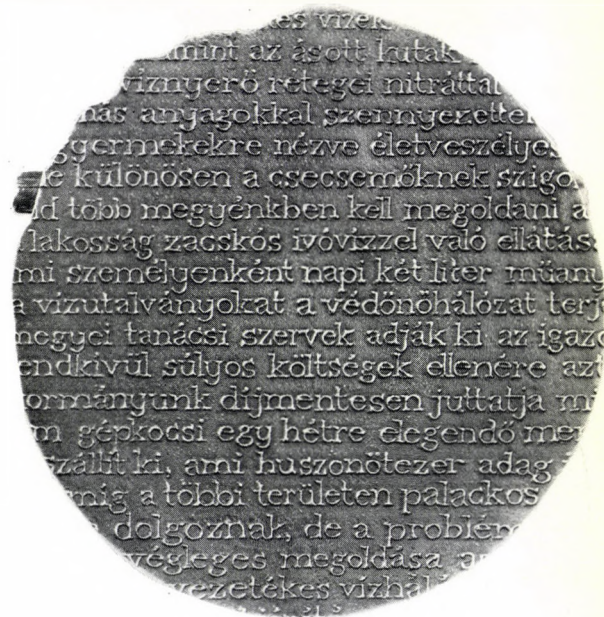 es vizek
mint az ásott kutak
viznyerő rétegei nitráttal
más anyagokkal szennyezettek
gyermekekre nézve életveszélyes
különösen a csecsemőknek szigo
d több megyénkben kell megoldani a
lakosság zacskós ivóvizzel való ellátás
mi személyenként napi két liter műany
a vizutalványokat a védőnőhálózat terj
megyei tanácsi szervek adják ki az igazo
endkivül súlyos költségek ellenére azt
ormányunk dijmentesen juttatja
m gépkocsi egy hétre elegendő
szállit ki, ami huszonötezer adag
mig a többi területen palackos
dolgoznak, de a problém
végleges megoldása a
vezetékes vizhál